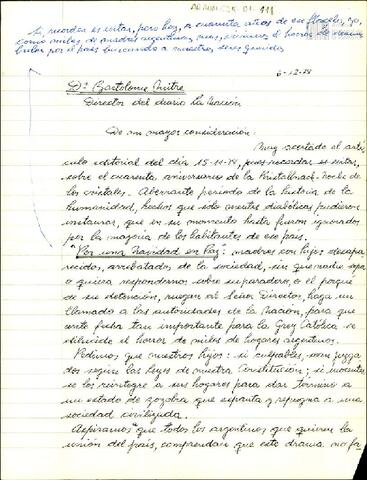 Si, recordar es evitar, pero hoy, a cuarenta años de ese flagelo, yo,
como miles de madres argentinas más, vivimos el horror de deambular
por el país buscando a nuestros seres queridos
6-12-78
Dr Bartolomé Mitre
Director del diario La Nación
De mi mayor consideración:
Muy acertado el artí
culo editorial del día 15-11-78, pues recordar es evitar,
sobre el cuarenta aniversario de la Kristallnach-Noche de
los cristales. Aberrante período de la historia de la
humanidad, hechos que sólo mentes diabólicas pudieron
instaurar, que en su momento hasta fueron ignorados
por la mayoría de los habitantes de ese país.
"Por una Navidad en Paz" madres con hijos desapa
recidos, arrebatados de la sociedad, sin que nadie sepa
o quiera respondernos sobre su paradero, o el porqué
de su detención, ruegan al Señor Director, haga un
llamado a las autoridades de la Nación, para que
ante fecha tan importante para la Grey Católica se
dilucide el horror de miles de hogares argentinos.
Pedimos que nuestros hijos: si culpables, sean juzga
dos según las leyes de nuestra Constitución; si inocentes
se los reintegre a sus hogares para dar término a
un estado de zozobra que espanta y repugna a una
sociedad civilizada.
Aspiramos "que todos los argentinos que quieren la
unión del país, comprendan que este drama no fa